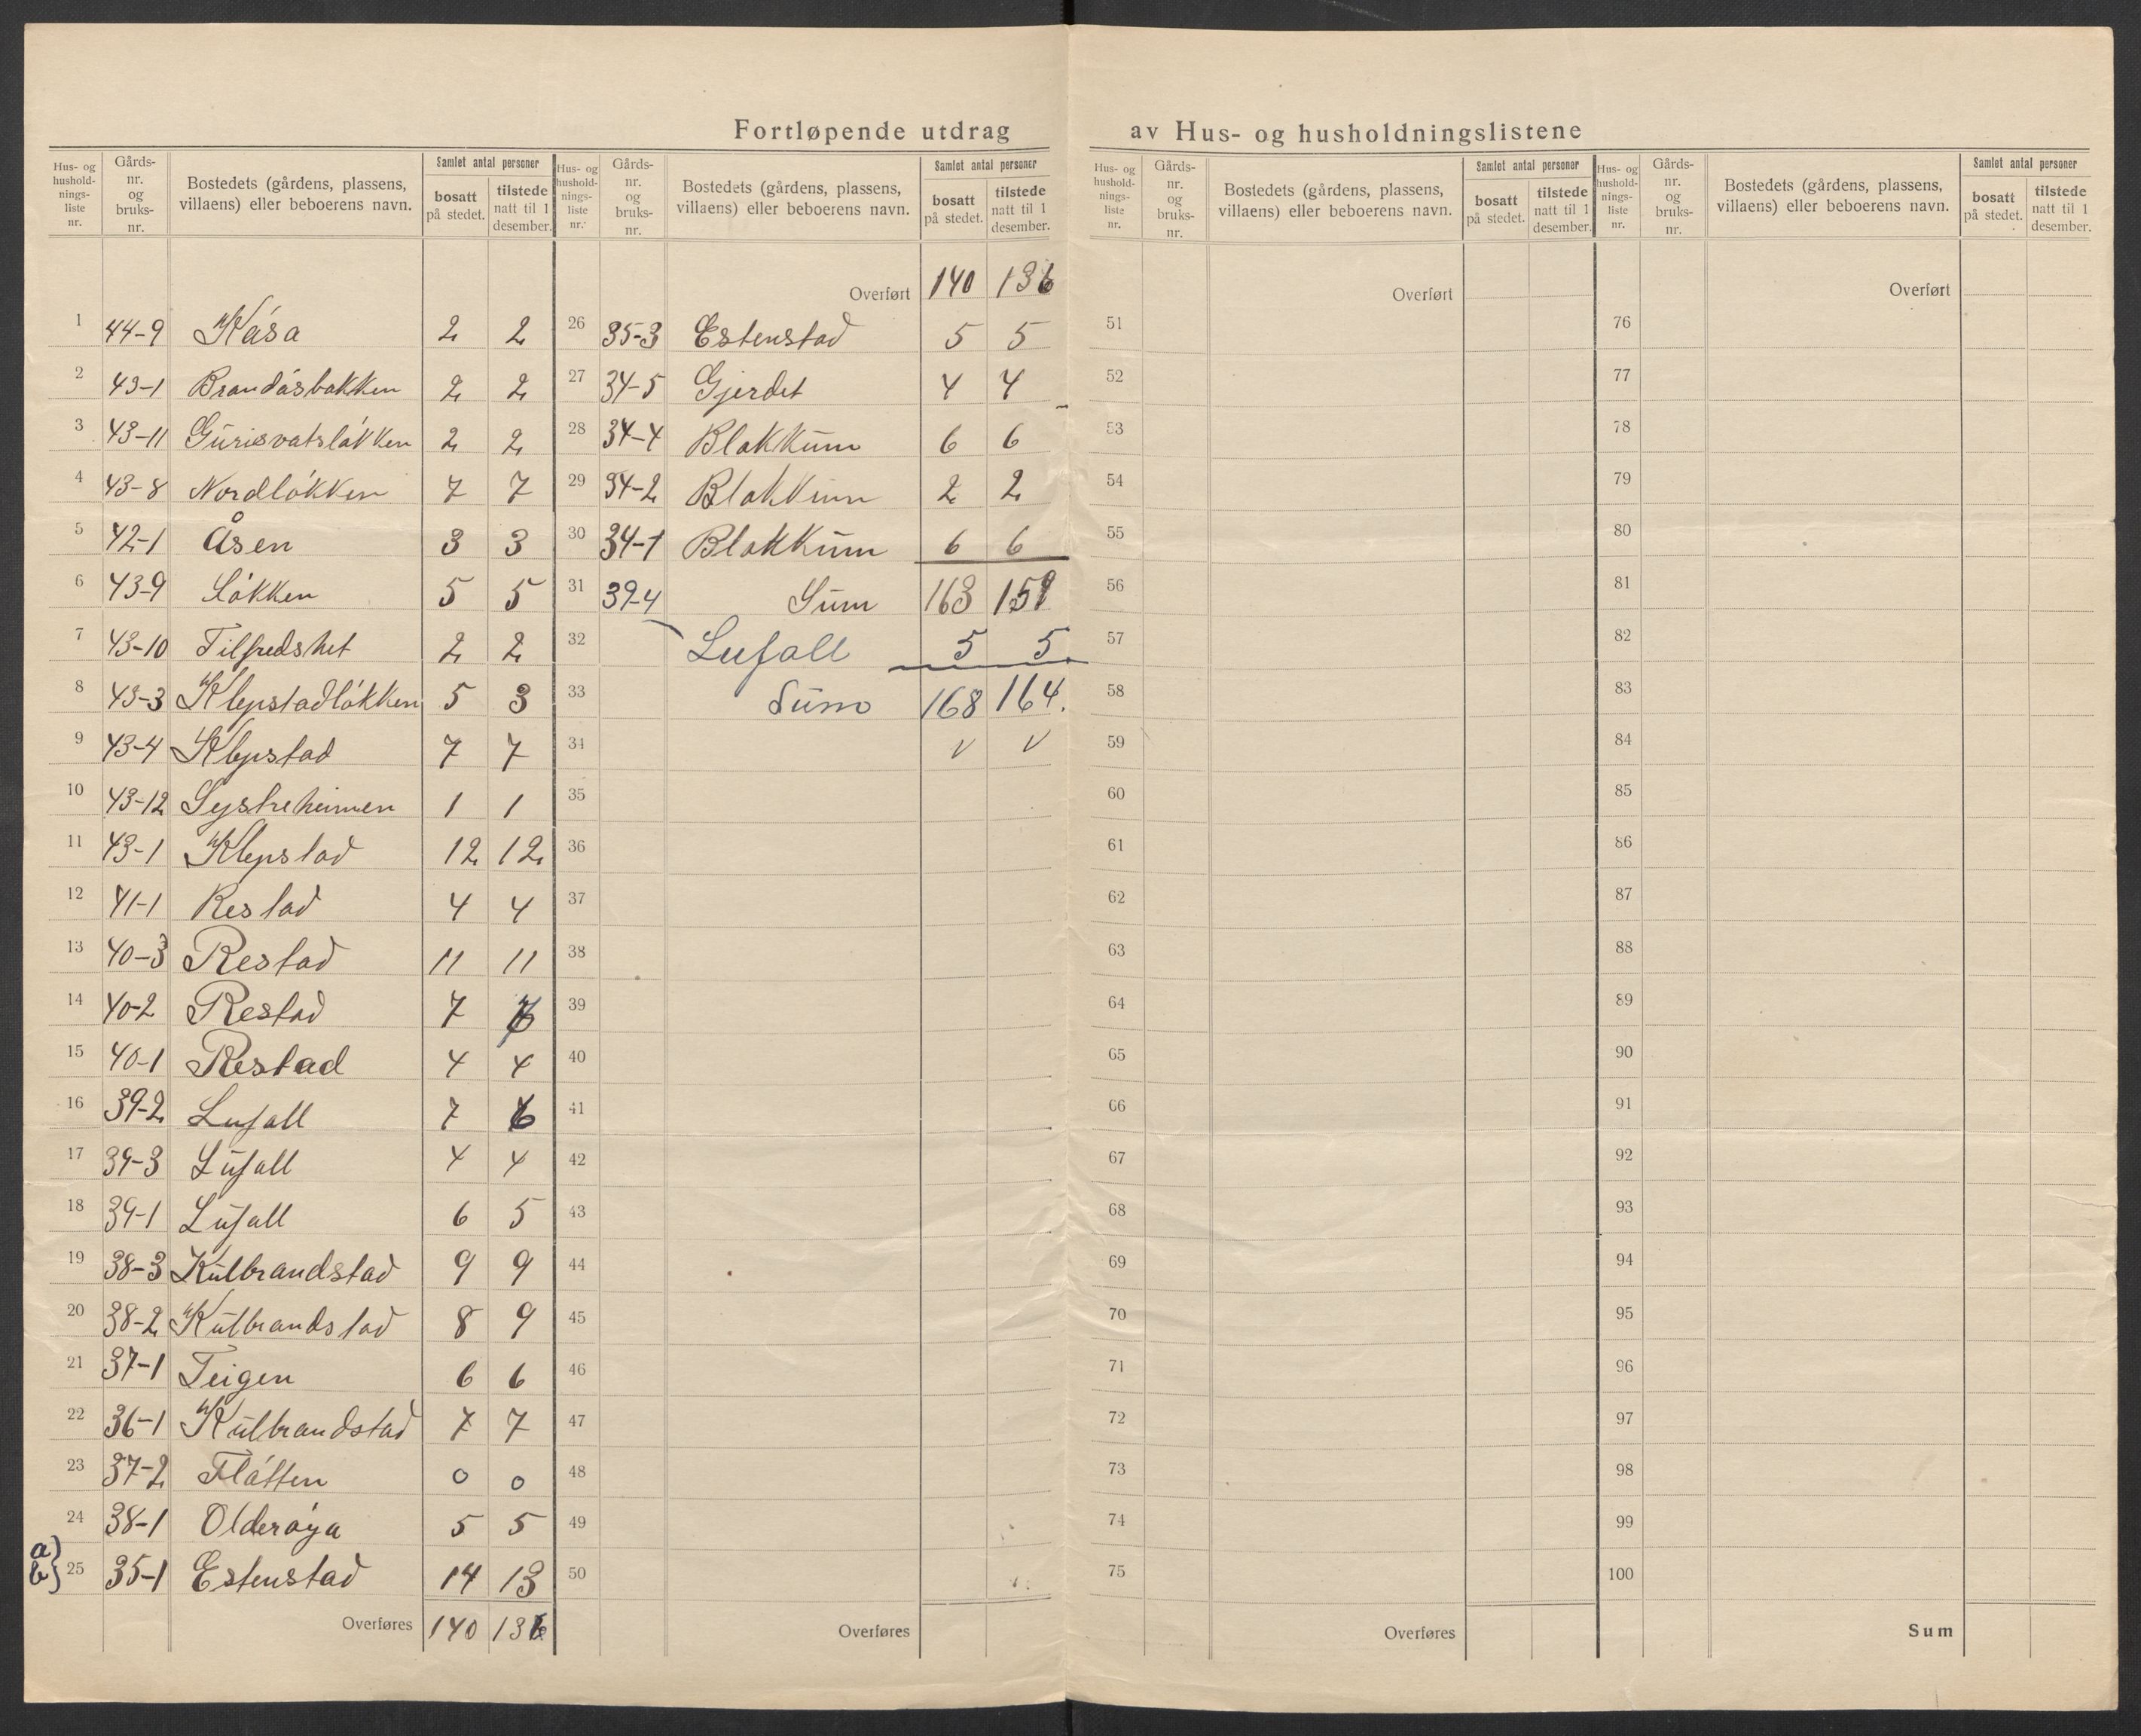 Fortløpende utdrag av Hus- og husholdningslistene
Hus- og husholdnings-liste nr. Gårds-nr. og bruks-nr. Bostedets (gårdens, plassens, villaens) eller beboerens navn. Samlet antal personer bosatt på stedet. tilstede natt til 1 desember.
1 44-9 Kåsa 2 2
2 43-1 Brandåsbakken 2 2
3 43-11 Gurisvatsløkken 2 2
4 43-8 Nordløkken 7 7
5 42-1 Åsen 3 3
6 43-9 Løkken 5 5
7 43-10 Tilfredshet 2 2
8 43-3 Klepstadløkken 5 3
9 43-4 Klepstad 7 7
10 43-12 Systreheimen 1 1
11 43-1 Klepstad 12 12
12 41-1 Restad 4 4
13 40-3 Restad 11 11
14 40-2 Restad 7
15 40-1 Restad 4 4
16 39-2 Lufall 7 6
17 39-3 Lufall 4 4
18 39-1 Lufall 6 5
19 38-3 Kulbrandstad 9 9
20 38-2 Kulbrandstad 8 9
21 37-1 Teigen 6 6
22 36-1 Kulbrandstad 7 7
23 37-2 Flåtten 0 0
24 38-1 Olderøya 5 5
a) b) 25 35-1 Estenstad 14 13
Overføres 140 136
Hus- og husholdnings-liste nr. Gårds-nr. og bruks-nr. Bostedets (gårdens, plassens, villaens) eller beboerens navn. Samlet antal personer bosatt på stedet. tilstede natt til 1 desember.
Overført 140 136
26 35-3 Estenstad 5 5
27 34-5 Gjerdet 4 4
28 34-4 Blakkum 6 6
29 34-2 Blakkum 2 2
30 34-1 Blakkum 6 6
31 39-4 Sum 163 159
32 Lufall 5 5
33 Sum 168 164.
34 v v
35
36
37
38
39
40
41
42
43
44
45
46
47
48
49
50
Overføres
Hus- og husholdnings-liste nr. Gårds-nr. og bruks-nr. Bostedets (gårdens, plassens, villaens) eller beboerens navn. Samlet antal personer bosatt på stedet. tilstede natt til 1 desember.
Overført
51
52
53
54
55
56
57
58
59
60
61
62
63
64
65
66
67
68
69
70
71
72
73
74
75
Overføres
Hus- og husholdnings-liste nr. Gårds-nr. og bruks-nr. Bostedets (gårdens, plassens, villaens) eller beboerens navn. Samlet antal personer bosatt på stedet. tilstede natt til 1 desember.
Overført
76
77
78
79
80
81
82
83
84
85
86
87
88
89
90
91
92
93
94
95
96
97
98
99
100
Sum